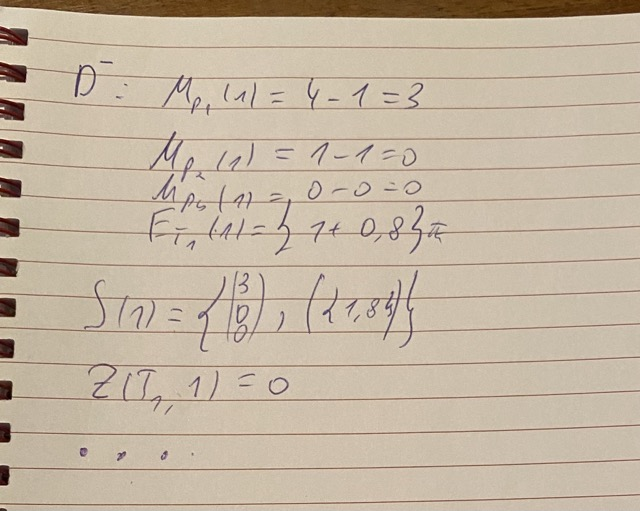 D⁻: M_P₁(1) = 4 - 1 = 3
M_P₂(1) = 1 - 1 = 0
M_P₃(1) = 0 - 0 = 0
E_T₁(1) = { 1 + 0,8 }
S(1) = { (3 0 0), ({1,8}) }
Z(T₁, 1) = 0
. . . .